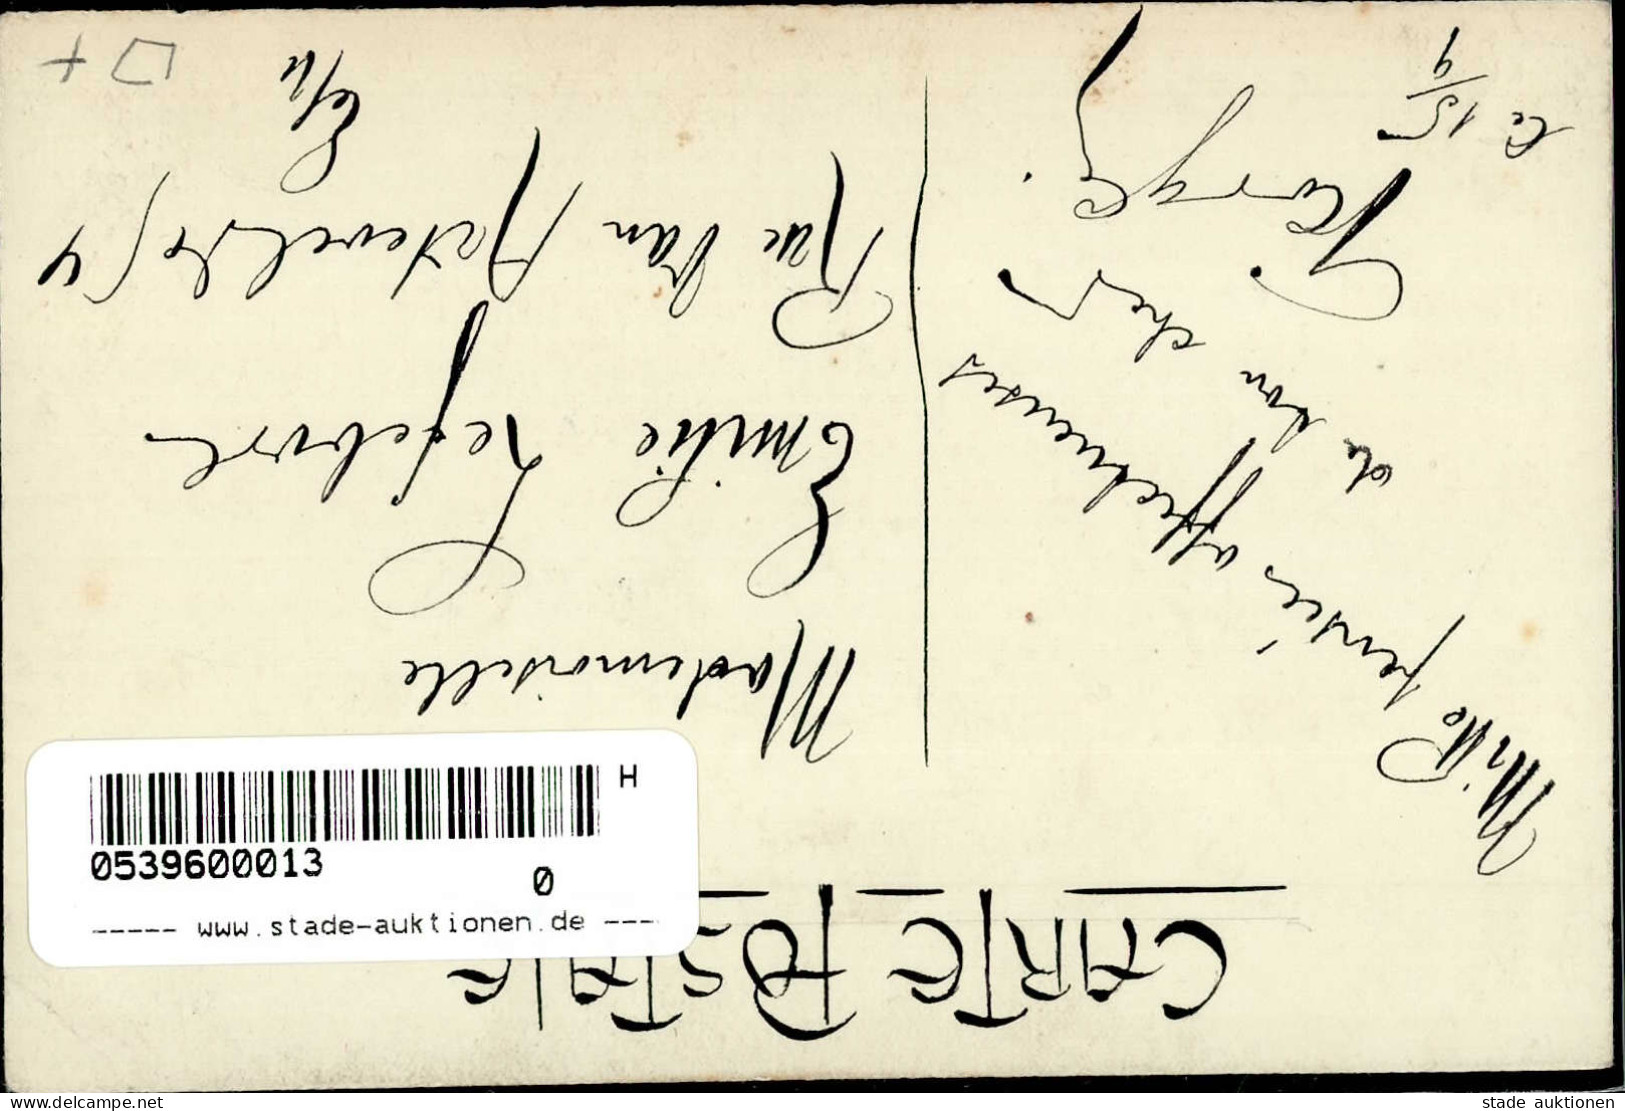 CARTE POSTALE
Mille pensées affectueuses
de ton cher
Georges.
le 15/9
Mademoiselle
Emilie Lefebvre
Rue Van Artevelde 54
E/V
H
0539600013
0
----- www.stade-auktionen.de ---
www.delcampe.net
stade auktionen